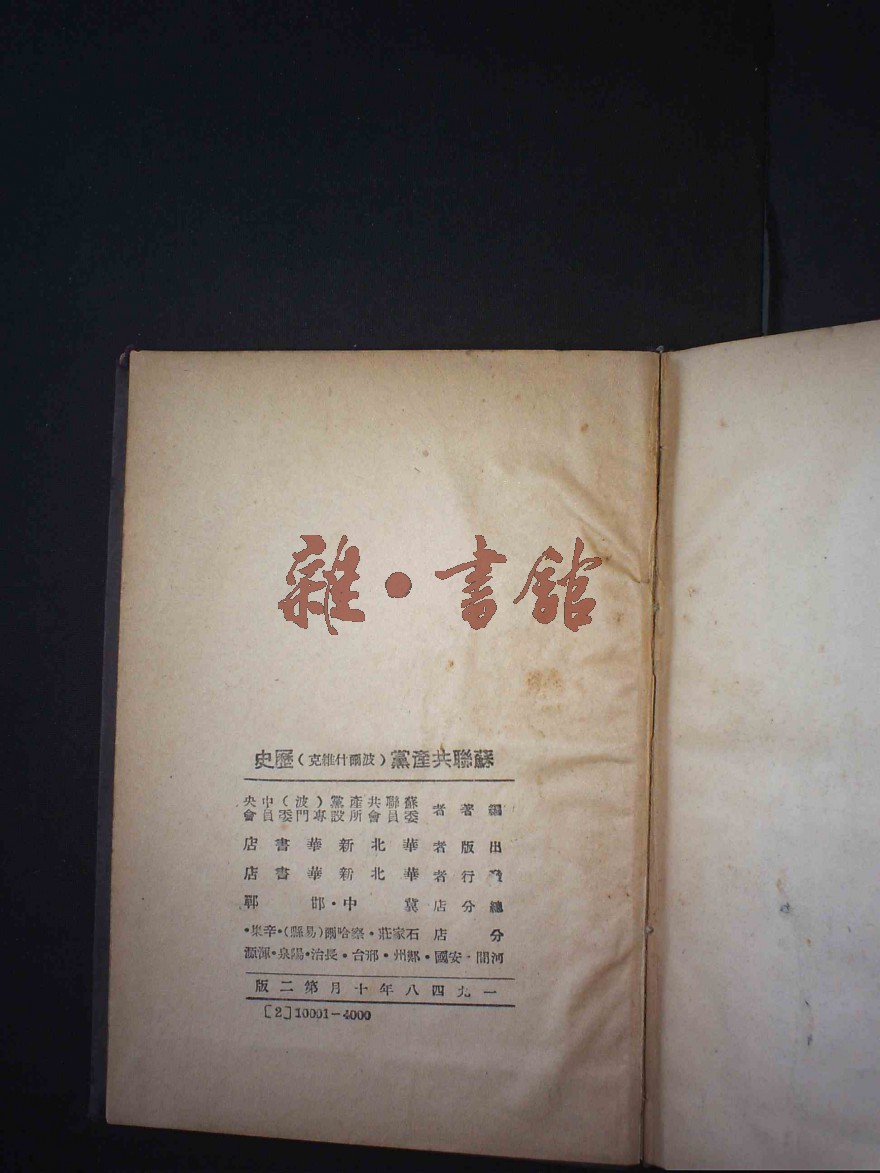 雜・書館
蘇聯共產黨（波爾什維克）歷史
編著者 蘇聯共產黨（波）中央
委員會所設專門委員會
出版者 華北新華書店
發行者 華北新華書店
總分店 冀中・邯鄲
分店 石家莊・察哈爾（易縣）・辛集・
河間・安國・州・邢台・長治・陽泉・渾源
一九四八年十月第二版
[2]10001-4000